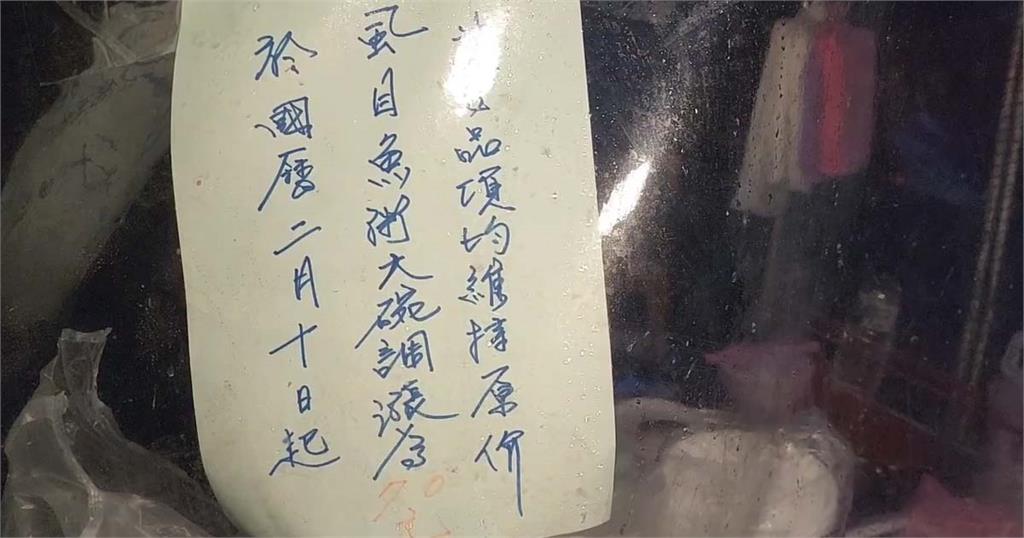 於國曆二月十日起
虱目魚粥大碗調漲為70元
品項均維持原价